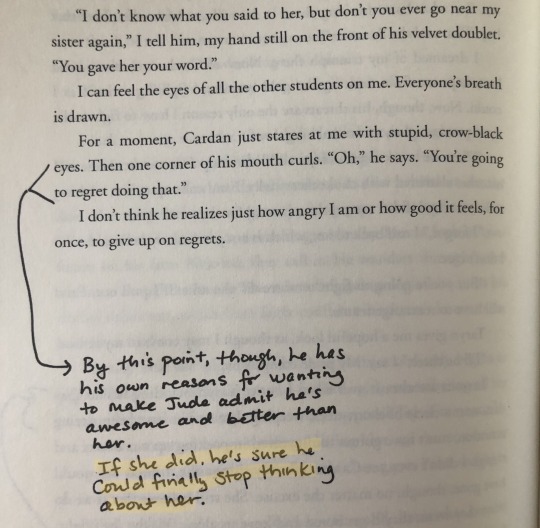 “I don’t know what you said to her, but don’t you ever go near my
sister again,” I tell him, my hand still on the front of his velvet doublet.
“You gave her your word.”
I can feel the eyes of all the other students on me. Everyone’s breath
is drawn.
For a moment, Cardan just stares at me with stupid, crow-black
eyes. Then one corner of his mouth curls. “Oh,” he says. “You’re going
to regret doing that.”
I don’t think he realizes just how angry I am or how good it feels, for
once, to give up on regrets.
By this point, though, he has
his own reasons for wanting
to make Jude admit he's
awesome and better than
her.
If she did, he's sure he
could finally stop thinking
about her.